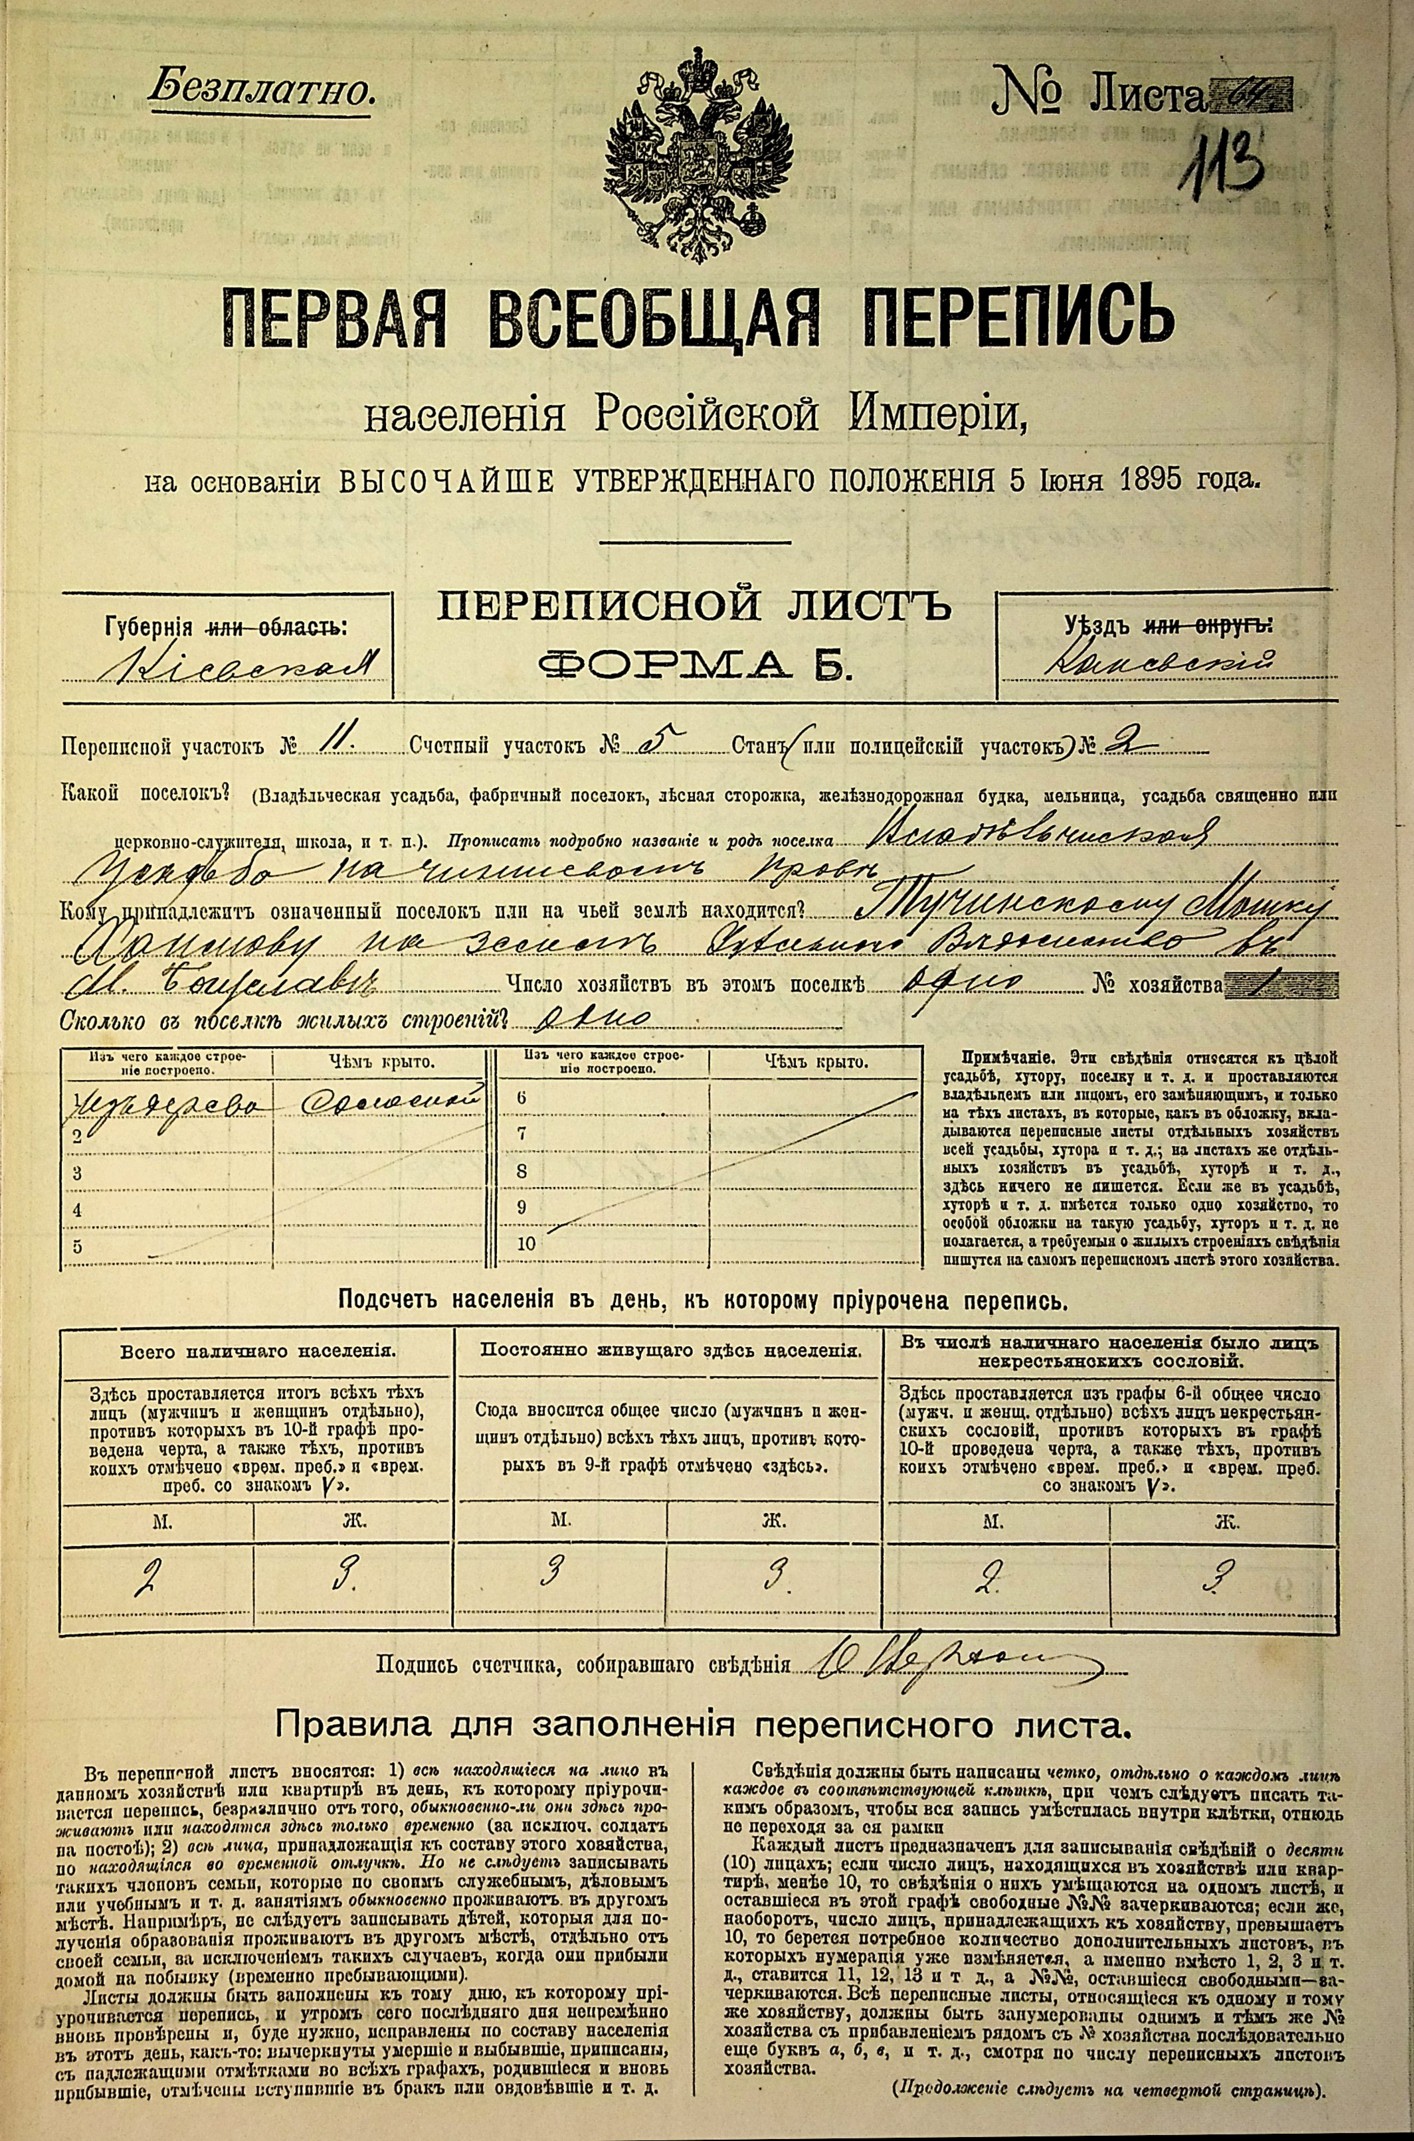 Безплатно.
№ Листа 64
113
ПЕРВАЯ ВСЕОБЩАЯ ПЕРЕПИСЬ
населенія Россійской Имперіи,
на основаніи ВЫСОЧАЙШЕ УТВЕРЖДЕННАГО ПОЛОЖЕНІЯ 5 Іюня 1895 года.
Губернія или область:
Кіевская
ПЕРЕПИСНОЙ ЛИСТЪ
ФОРМА Б.
Уѣздъ или округъ:
Каневскій
Переписной участокъ № 11. Счетный участокъ № 5 Станъ (или полицейскій участокъ) № 2
Какой поселокъ? (Владѣльческая усадьба, фабричный поселокъ, лѣсная сторожка, желѣзнодорожная будка, мельница, усадьба священно или
церковно-служителя, школа, и т. п.). Прописать подробно названіе и родъ поселка
Усадьба на чиншевомъ правѣ
Кому принадлежитъ означенный поселокъ или на чьей землѣ находится? Тучинскому Мошку
на землѣ въ
М. Богуславѣ Число хозяйствъ въ этомъ поселкѣ одно № хозяйства 1
Сколько въ поселкѣ жилыхъ строеній? одно
Изъ чего каждое строе-
ніе построено.
Чѣмъ крыто.
Изъ чего каждое строе-
ніе построено.
Чѣмъ крыто.
1 Изъ дерева Соломой 6
2 7
3 8
4 9
5 10
Примѣчаніе. Эти свѣдѣнія относятся къ цѣлой
усадьбѣ, хутору, поселку и т. д. и проставляются
владѣльцемъ или лицомъ, его замѣняющимъ, и только
на тѣхъ листахъ, въ которые, какъ въ обложку, вкла-
дываются переписные листы отдѣльныхъ хозяйствъ
всей усадьбы, хутора и т. д.; на листахъ же отдѣль-
ныхъ хозяйствъ въ усадьбѣ, хуторѣ и т. д.,
здѣсь ничего не пишется. Если же въ усадьбѣ,
хуторѣ и т. д. имѣется только одно хозяйство, то
особой обложки на такую усадьбу, хуторъ и т. д. не
полагается, а требуемыя о жилыхъ строеніяхъ свѣдѣнія
пишутся на самомъ переписномъ листѣ этого хозяйства.
Подсчетъ населенія въ день, къ которому пріурочена перепись.
Всего наличнаго населенія.
Здѣсь проставляется итогъ всѣхъ тѣхъ
лицъ (мужчинъ и женщинъ отдѣльно),
противъ которыхъ въ 10-й графѣ про-
ведена черта, а также тѣхъ, противъ
коихъ отмѣчено «врем. преб.» и «врем.
преб. со знакомъ V».
Постоянно живущаго здѣсь населенія.
Сюда вносится общее число (мужчинъ и жен-
щинъ отдѣльно) всѣхъ тѣхъ лицъ, противъ кото-
рыхъ въ 9-й графѣ отмѣчено «здѣсь».
Въ числѣ наличнаго населенія было лицъ
некрестьянскихъ сословій.
Здѣсь проставляется изъ графы 6-й общее число
(мужч. и женщ. отдѣльно) всѣхъ лицъ некрестьян-
скихъ сословій, противъ которыхъ въ графѣ
10-й проведена черта, а также тѣхъ, противъ
коихъ отмѣчено «врем. преб.» и «врем. преб.
со знакомъ V».
М. Ж. М. Ж. М. Ж.
2 3. 3 3. 2. 3.
Подпись счетчика, собиравшаго свѣдѣнія
Правила для заполненія переписного листа.
Въ переписной листъ вносятся: 1) всѣ находящіеся на лицо въ
данномъ хозяйствѣ или квартирѣ въ день, къ которому пріурочи-
вается перепись, безразлично отъ того, обыкновенно-ли они здѣсь про-
живаютъ или находятся здѣсь только временно (за исключ. солдатъ
на постоѣ); 2) всѣ лица, принадлежащія къ составу этого хозяйства,
но находящіяся во временной отлучкѣ. Но не слѣдуетъ записывать
такихъ членовъ семьи, которые по своимъ служебнымъ, дѣловымъ
или учебнымъ и т. д. занятіямъ обыкновенно проживаютъ въ другомъ
мѣстѣ. Напримѣръ, не слѣдуетъ записывать дѣтей, которыя для по-
лученія образованія проживаютъ въ другомъ мѣстѣ, отдѣльно отъ
своей семьи, за исключеніемъ такихъ случаевъ, когда они прибыли
домой на побывку (временно пребывающими).
Листы должны быть заполнены къ тому дню, къ которому прі-
урочивается перепись, и утромъ сего послѣдняго дня непремѣнно
вновь провѣрены и, буде нужно, исправлены по составу населенія
въ этотъ день, какъ-то: вычеркнуты умершіе и выбывшіе, приписаны,
съ надлежащими отмѣтками во всѣхъ графахъ, родившіеся и вновь
прибывшіе, отмѣчены вступившіе въ бракъ или овдовѣвшіе и т. д.
Свѣдѣнія должны быть написаны четко, отдѣльно о каждомъ лицѣ
каждое въ соотвѣтствующей клѣткѣ, при чемъ слѣдуетъ писать та-
кимъ образомъ, чтобы вся запись умѣстилась внутри клѣтки, отнюдь
не переходя за ея рамки
Каждый листъ предназначенъ для записыванія свѣдѣній о десяти
(10) лицахъ; если число лицъ, находящихся въ хозяйствѣ или квар-
тирѣ, менѣе 10, то свѣдѣнія о нихъ умѣщаются на одномъ листѣ, и
оставшіеся въ этой графѣ свободные №№ зачеркиваются; если же,
наоборотъ, число лицъ, принадлежащихъ къ хозяйству, превышаетъ
10, то берется потребное количество дополнительныхъ листовъ, въ
которыхъ нумерація уже измѣняется, а именно вмѣсто 1, 2, 3 и т.
д., ставится 11, 12, 13 и т д., а №№, оставшіеся свободными—за-
черкиваются. Всѣ переписные листы, относящіеся къ одному и тому
же хозяйству, должны быть занумерованы однимъ и тѣмъ же №
хозяйства съ прибавленіемъ рядомъ съ № хозяйства послѣдовательно
еще буквъ а, б, в, и т. д., смотря по числу переписныхъ листовъ
хозяйства.
(Продолженіе слѣдуетъ на четвертой страницѣ).